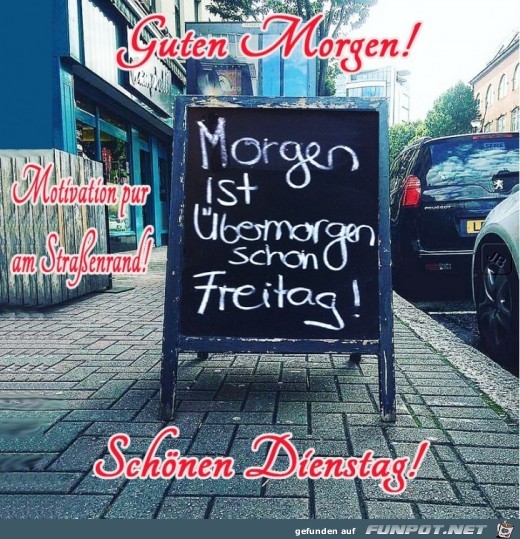 Guten Morgen!
Morgen
ist
Übermorgen
schon
Freitag!
Motivation pur
am Straßenrand!
PEUGEOT
Schönen Dienstag!
gefunden auf FUNPOT.NET